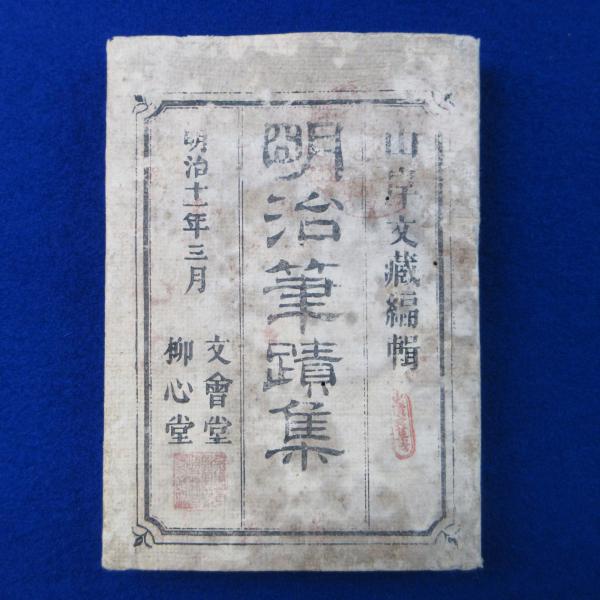 山岸文藏編輯
明治筆蹟集
明治十一年三月
文會堂
柳心堂